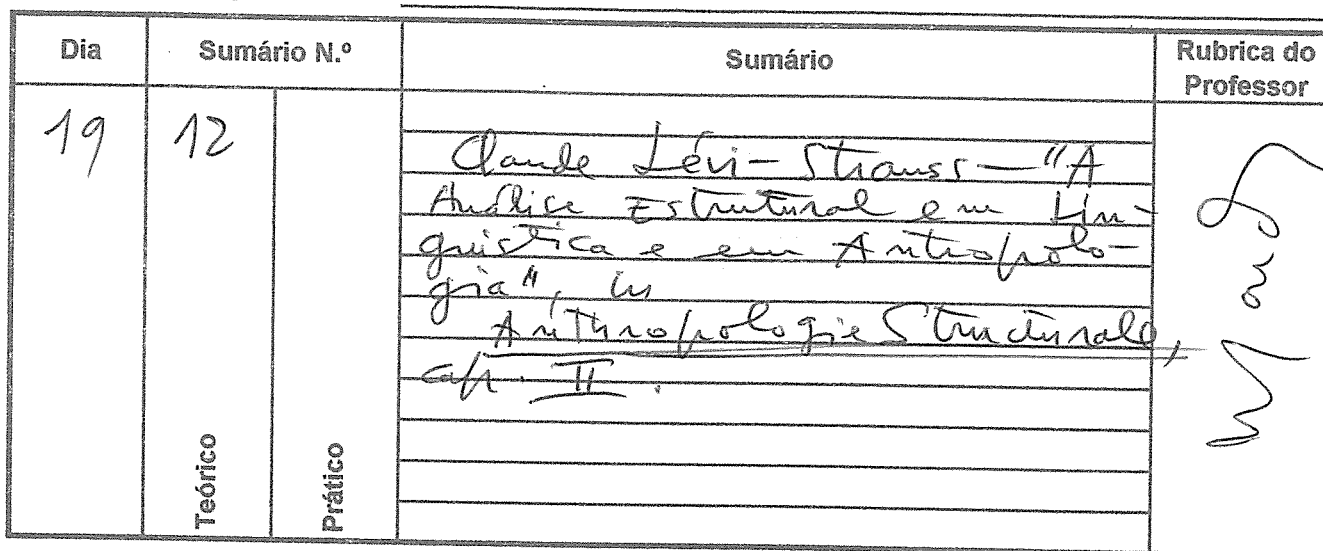 Dia Sumário N.º Sumário Rubrica do Professor
19 12
Claude Lévi-Strauss — "A
Análise Estrutural em Lin-
guística e em Antropolo-
gia", in
Anthropologie Structurale,
cap. II.
Teórico Prático